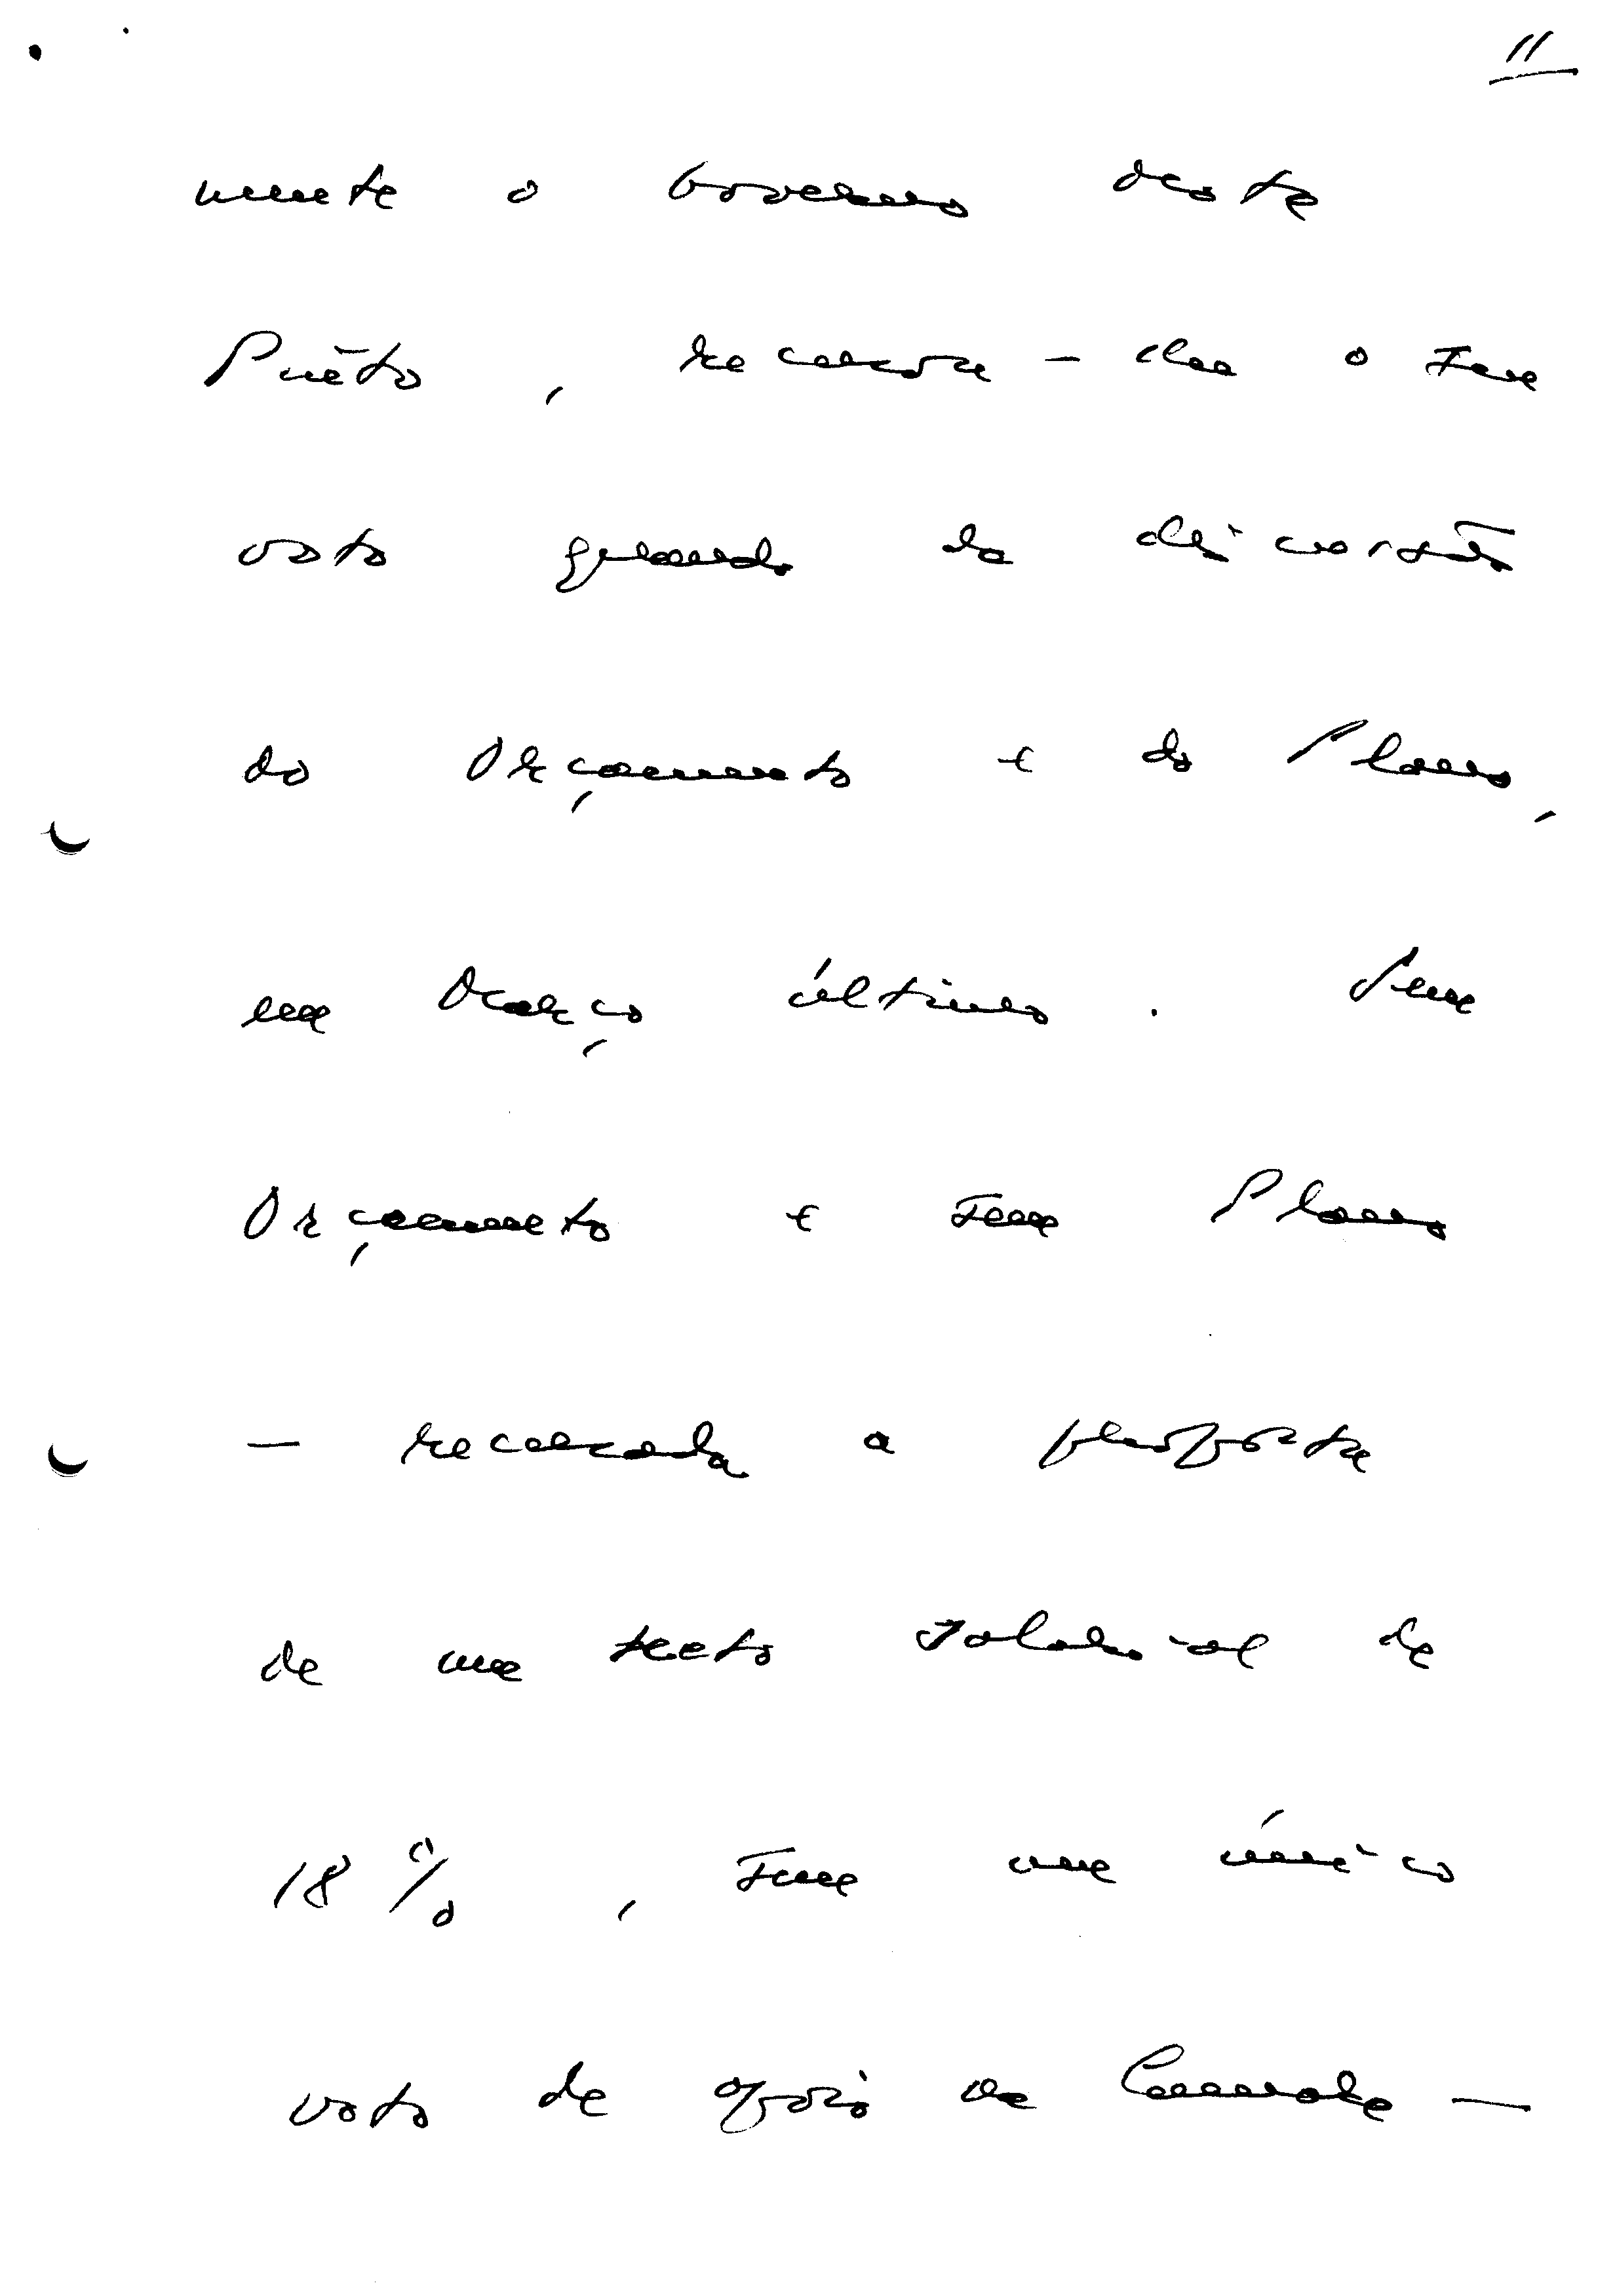 11
mente o Governo deste
Pinto, recusou-lhe o seu
voto quando da discussão
do Orçamento e do Plano,
em Março último. Sem
Orçamento e sem Plano
— recusada a proposta
de um tecto salarial de
18 %, sem um único
voto de apoio na Câmara —